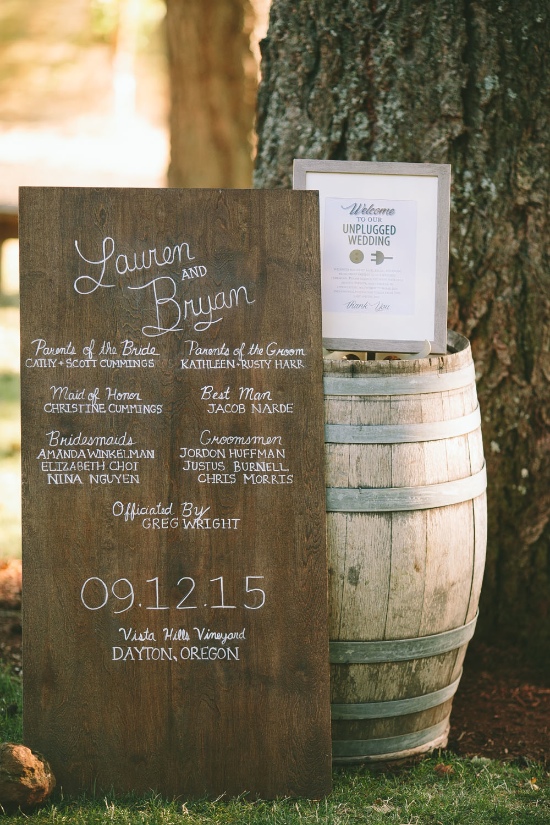 Lauren
AND
Bryan
Parents of the Bride
CATHY + SCOTT CUMMINGS
Parents of the Groom
KATHLEEN + RUSTY HARR
Maid of Honor
CHRISTINE CUMMINGS
Best Man
JACOB NARDE
Bridesmaids
AMANDA WINKELMAN
ELIZABETH CHOI
NINA NGUYEN
Groomsmen
JORDON HUFFMAN
JUSTUS BURNELL
CHRIS MORRIS
Officiated By
GREG WRIGHT
09.12.15
Vista Hills Vineyard
DAYTON, OREGON
Welcome
TO OUR
UNPLUGGED
WEDDING
thank you